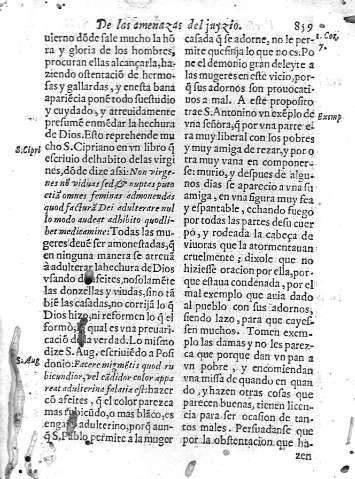 De las amenazas del juyzio. 859
uierno dõde sale mucho la hõ
ra y gloria de los hombres,
procuran ellas alcançarla, ha-
ziendo ostentaciõ de hermo-
sas y gallardas, y en esta bana
apariẽcia ponẽ todo su estudio
y cuydado, y atreuidamente
presumẽ enmẽdar la hechura
de Dios. Esto reprehende mu
cho S. Cipriano en vn libro q̃
escriuio del habito de las virgi
nes, dõde dize assi: Non virge-
nes nõ viduas sed & nuptas puto
etiã omnes feminas admonendas
quod facturã Dei adulterare nul
lo modo audeat adhibito quodli-
bet medicamine: Todas las mu-
geres deuẽ ser amonestadas, q̃
en ninguna manera se atreuã
à adulterar la hechura de Dios
vsando de afeites, no solamẽte
las donzellas y viudas, sino tã
biẽ las casadas, no corrijã lo q̃
Dios hizo, ni reformen lo q̃ el
formò, lo qual es vna preuari-
caciõ de la verdad. Lo mismo
dize S. Aug. escriuiẽdo a Posi
donio: Facere migmẽtis quod ru
bicundior, vel cãdidior color appa
reat adulterina falatia est: hazer
cõ afeites, q̃ el color parezca
mas rubicũdo, o mas blãco, es
engaño adulterino, porq̃ aun-
q̃ S. Pablo permite a la muger
S. Cipri
S. Aug
casada q̃ se adorne, no le per-
mite que finja lo que no es. Po
ne el demonio gran deleyte a
las mugeres en este vicio, por-
q̃ sus adornos son prouocati-
uos a mal. A este proposito
trae S. Antonino vn exẽplo de
vna señora, q̃ por vna parte e-
ra muy liberal con los pobres
y muy amiga de rezar, y por o
tra muy vana en componer-
se: murio, y despues de algu-
nos dias se aparecio a vna su
amiga, en vna figura muy fea
y espantable, echando fuego
por todas las partes de su cuer
po, y rodeada la cabeça de
viuoras que la atormentauan
cruelmente; dixole que no
hiziesse oracion por ella, por-
que estaua condenada, por el
mal exemplo que auia dado
al pueblo con sus adornos,
siendo lazo, para que cayes-
sen muchos. Tomen exem-
plo las damas y no les parez-
ca que porque dan vn pan a
vn pobre, y encomiendan
vna missa de quando en quan
do, y hazen otras cosas que
parecen buenas, tienen licen-
cia para ser ocasion de tan-
tos males. Persuadanse que
por la obstentacion que ha-
zen
1. Cor.
7.
Exemp